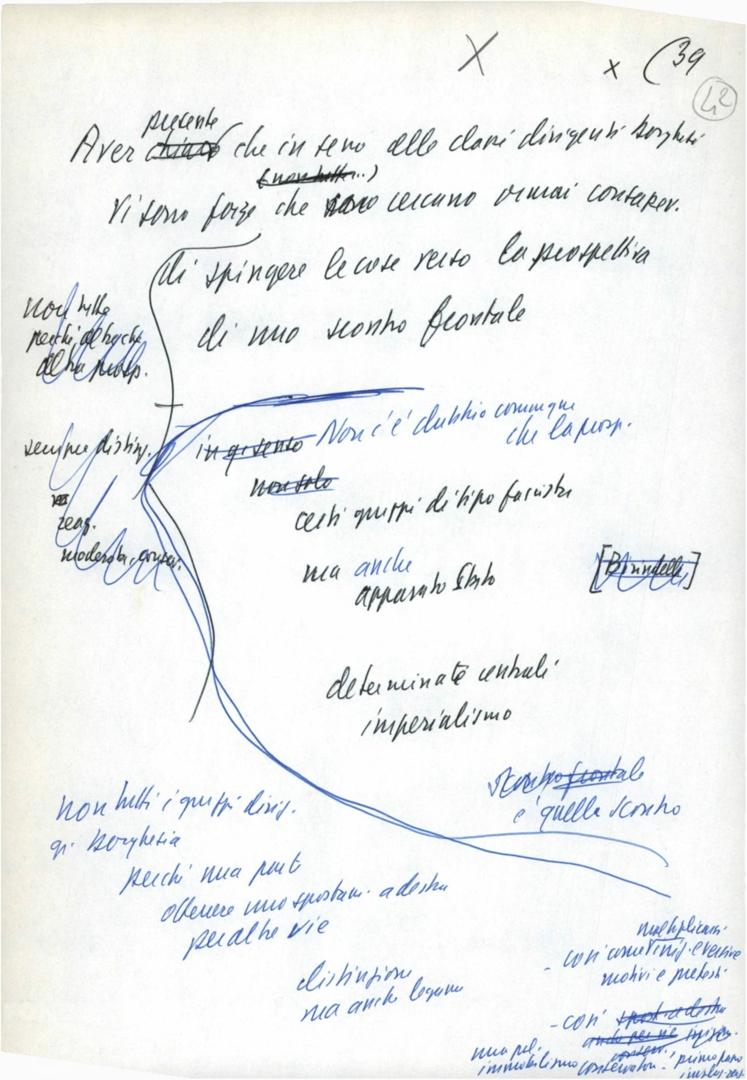 X x (39
42
presente
Aver chiaro che in seno alle classi dirigenti borghesi
(non tutte..)
Vi sono forze che sono cercano ormai consapev.
di spingere le cose verso la prospettiva
di uno scontro frontale
non tutte
perché, altre anche
altra prosp.
sempre disting.
reaz.
moderata, conser.
Non c'è dubbio comunque
che la prosp.
non solo
certi gruppi di tipo fascista
ma anche
apparato Stato
[Birindelli]
determinate centrali
imperialismo
scontro frontale
è quella scontro
non tutti i gruppi dirig.
gr. borghesia
perché una parte
ottenere uno spostam. a destra
per altre vie
distinzione
ma anche legame
multiplicarsi
- così come
motivi e pretesti
- così spost. a destra
una pol.
immobilismo conservator. primo passo